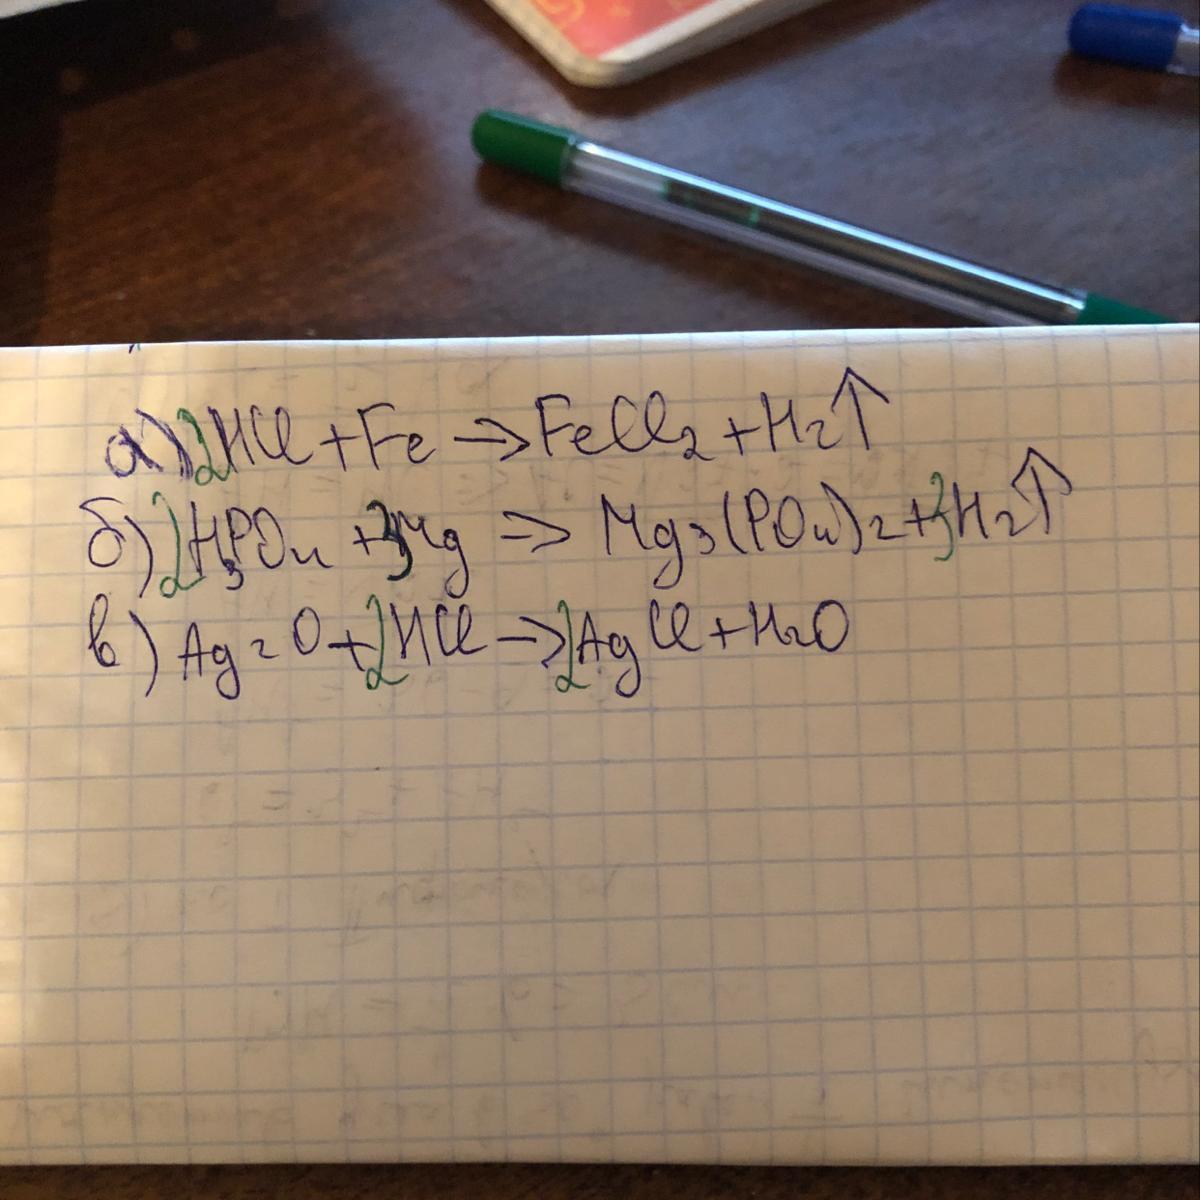 а) 2HCl + Fe → FeCl₂ + H₂↑
б) 2H₃PO₄ + 3Mg ⇒ Mg₃(PO₄)₂ + 3H₂↑
в) Ag₂O + 2HCl → 2AgCl + H₂O